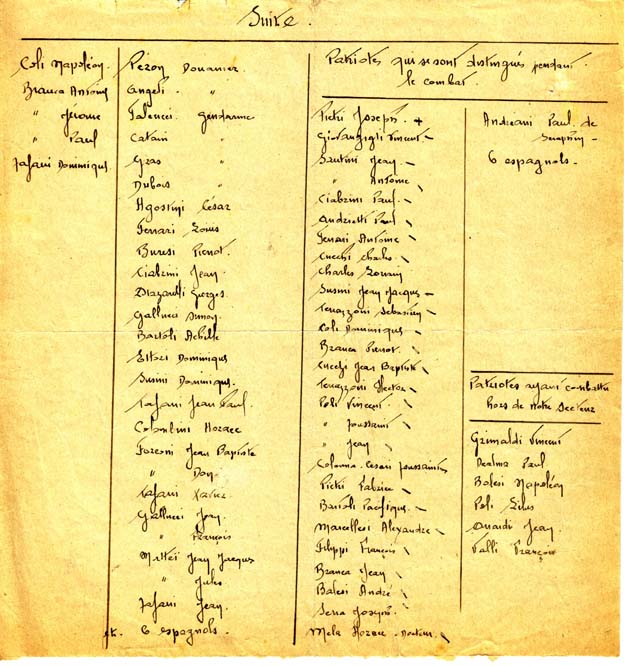 Suite.
Coli Napoléon.
Branca Antoine
" Jérome
" Paul
Tafani Dominique.
Pézon Douanier.
Angeli "
gendarme
Catani "
Gras "
Dubois "
Agostini César
Ferrari Louis
Buresi Pierrot.
Ciabrini Jean.
Georges.
Gallucci Simon.
Bartoli Achille
Ettori Dominique
Susini Dominique.
Tafani Jean Paul.
Colombini Horace
Forconi Jean Baptiste
" Don
Tafani Xavier.
Gallucci Jean.
" François
Mattei Jean Jacques
" Jules
Tafani Jean.
et. 6 espagnols.
Patriotes qui se sont distingués pendant
le combat.
Pietri Joseph. +
Giovangigli Vincent -
Santini Jean. -
" Antoine
Ciabrini Paul. -
Andrietti Paul
Ferrari Antoine
Cucchi Charles
Charles
Susini Jean Jacques -
Terrazzoni Sébastien
Coli Dominique -
Branca Pierrot.
Cucchi Jean Baptiste
Terrazzoni Hector
Poli Vincent
" Toussaint
" Jean
Colonna Cesari Toussaint
Pietri Fabrice
Bartoli Pacifique.
Marcellesi Alexandre -
Filippi François
Branca Jean
Balesi André
Serra Joseph
Mela Horace - Docteur
Andreani Paul. de
Serafin -
6 espagnols -
Patriotes ayant combattu
hors de notre Secteur
Grimaldi Vincent
Paul
Balesi Napoléon
Poli
Jean.
Valli François